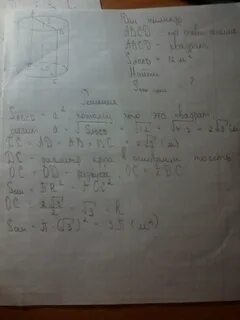 Дан цилиндр
ABCD - осевое сечение
ABCD - квадрат
S ABCD = 12 м²
Найти
S осн - ?
Решение
S ABCD = a² потому что это квадрат
a = √S ABCD = √12 = √4·3 = 2√3 (м)
DC = AD = AB = BC = 2√3 (м)
DC - диаметр круга в основании
OC = OD - радиусы. OC = ½DC
S осн = πR² = πOC²
OC = 2√3/2 = √3 = R
S осн = π·(√3)² = 3π (м²)